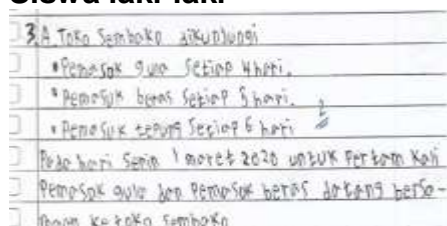 Siswa laki-laki
3. A Toko Sembako dikunjungi
• Pemasok gula Setiap 4 hari.
• Pemasuk beras Setiap 5 hari.
• Pemasuk tepung Setiap 6 hari
Pada hari Senin 1 maret 2020 untuk Pertam Kali
Pemasok gula dan Pemasok beras datang berso-
ke toko Sembako